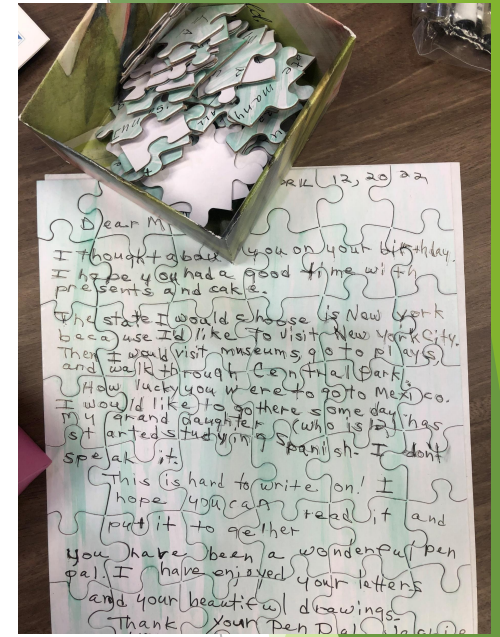 APRIL 12, 2022
Dear M
I thought about you on your birthday.
I hope you had a good time with
presents and cake.
The state I would choose is New York
because I'd like to visit New York City.
Then I would visit museums, go to plays,
and walk through Central Park.
How lucky you were to go to Mexico.
I would like to go there some day.
My grand daughter (who is 12) has
started studying Spanish. I don't
speak it.
This is hard to write on! I
hope you can read it and
put it to gether
You have been a wonderful pen
pal. I have enjoyed your letters
and your beautiful drawings.
Thank your Pen Pal
many